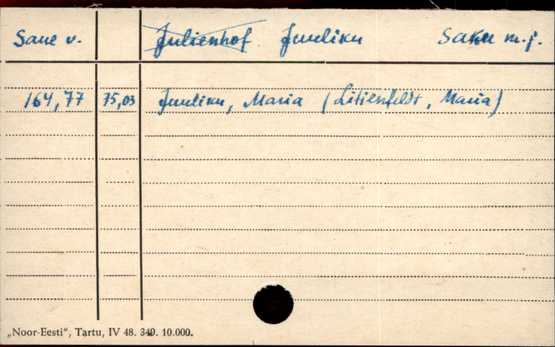 Saue v. Julienhof Juuliku Saku m.j.
164,77 75,03 Juuliku, Maria (Lilienfeldt, Maria)
„Noor-Eesti“, Tartu, IV 48. 340. 10.000.